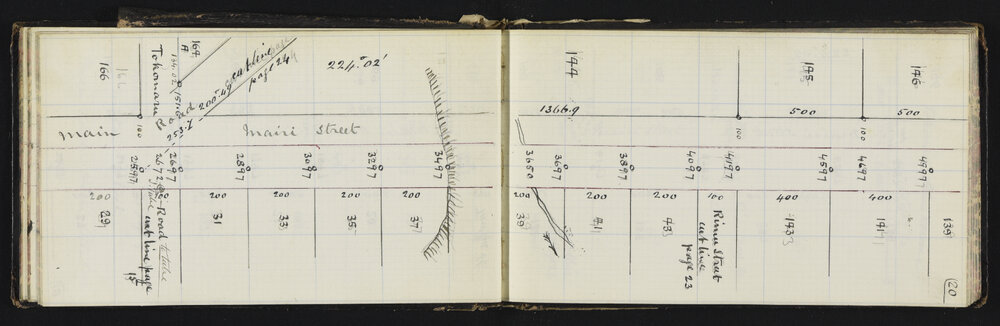 166
Tokanam Road
164
A
164.02
151.
253.7
200.49
cut line page 24
224° 02'
144
1366.9
145
500
146
500
100
Main
Main Street
100
100
2597
2672
2697
2897
3097
3297
3497
3650
3697
3897
4097
4197
4597
4697
4997
200
29
Road to tube
cut line page 15
200
31
200
33
200
35
200
37
200
39
200
41
200
43
100
Rimu Street
cut line
page 23
400
400
139
20